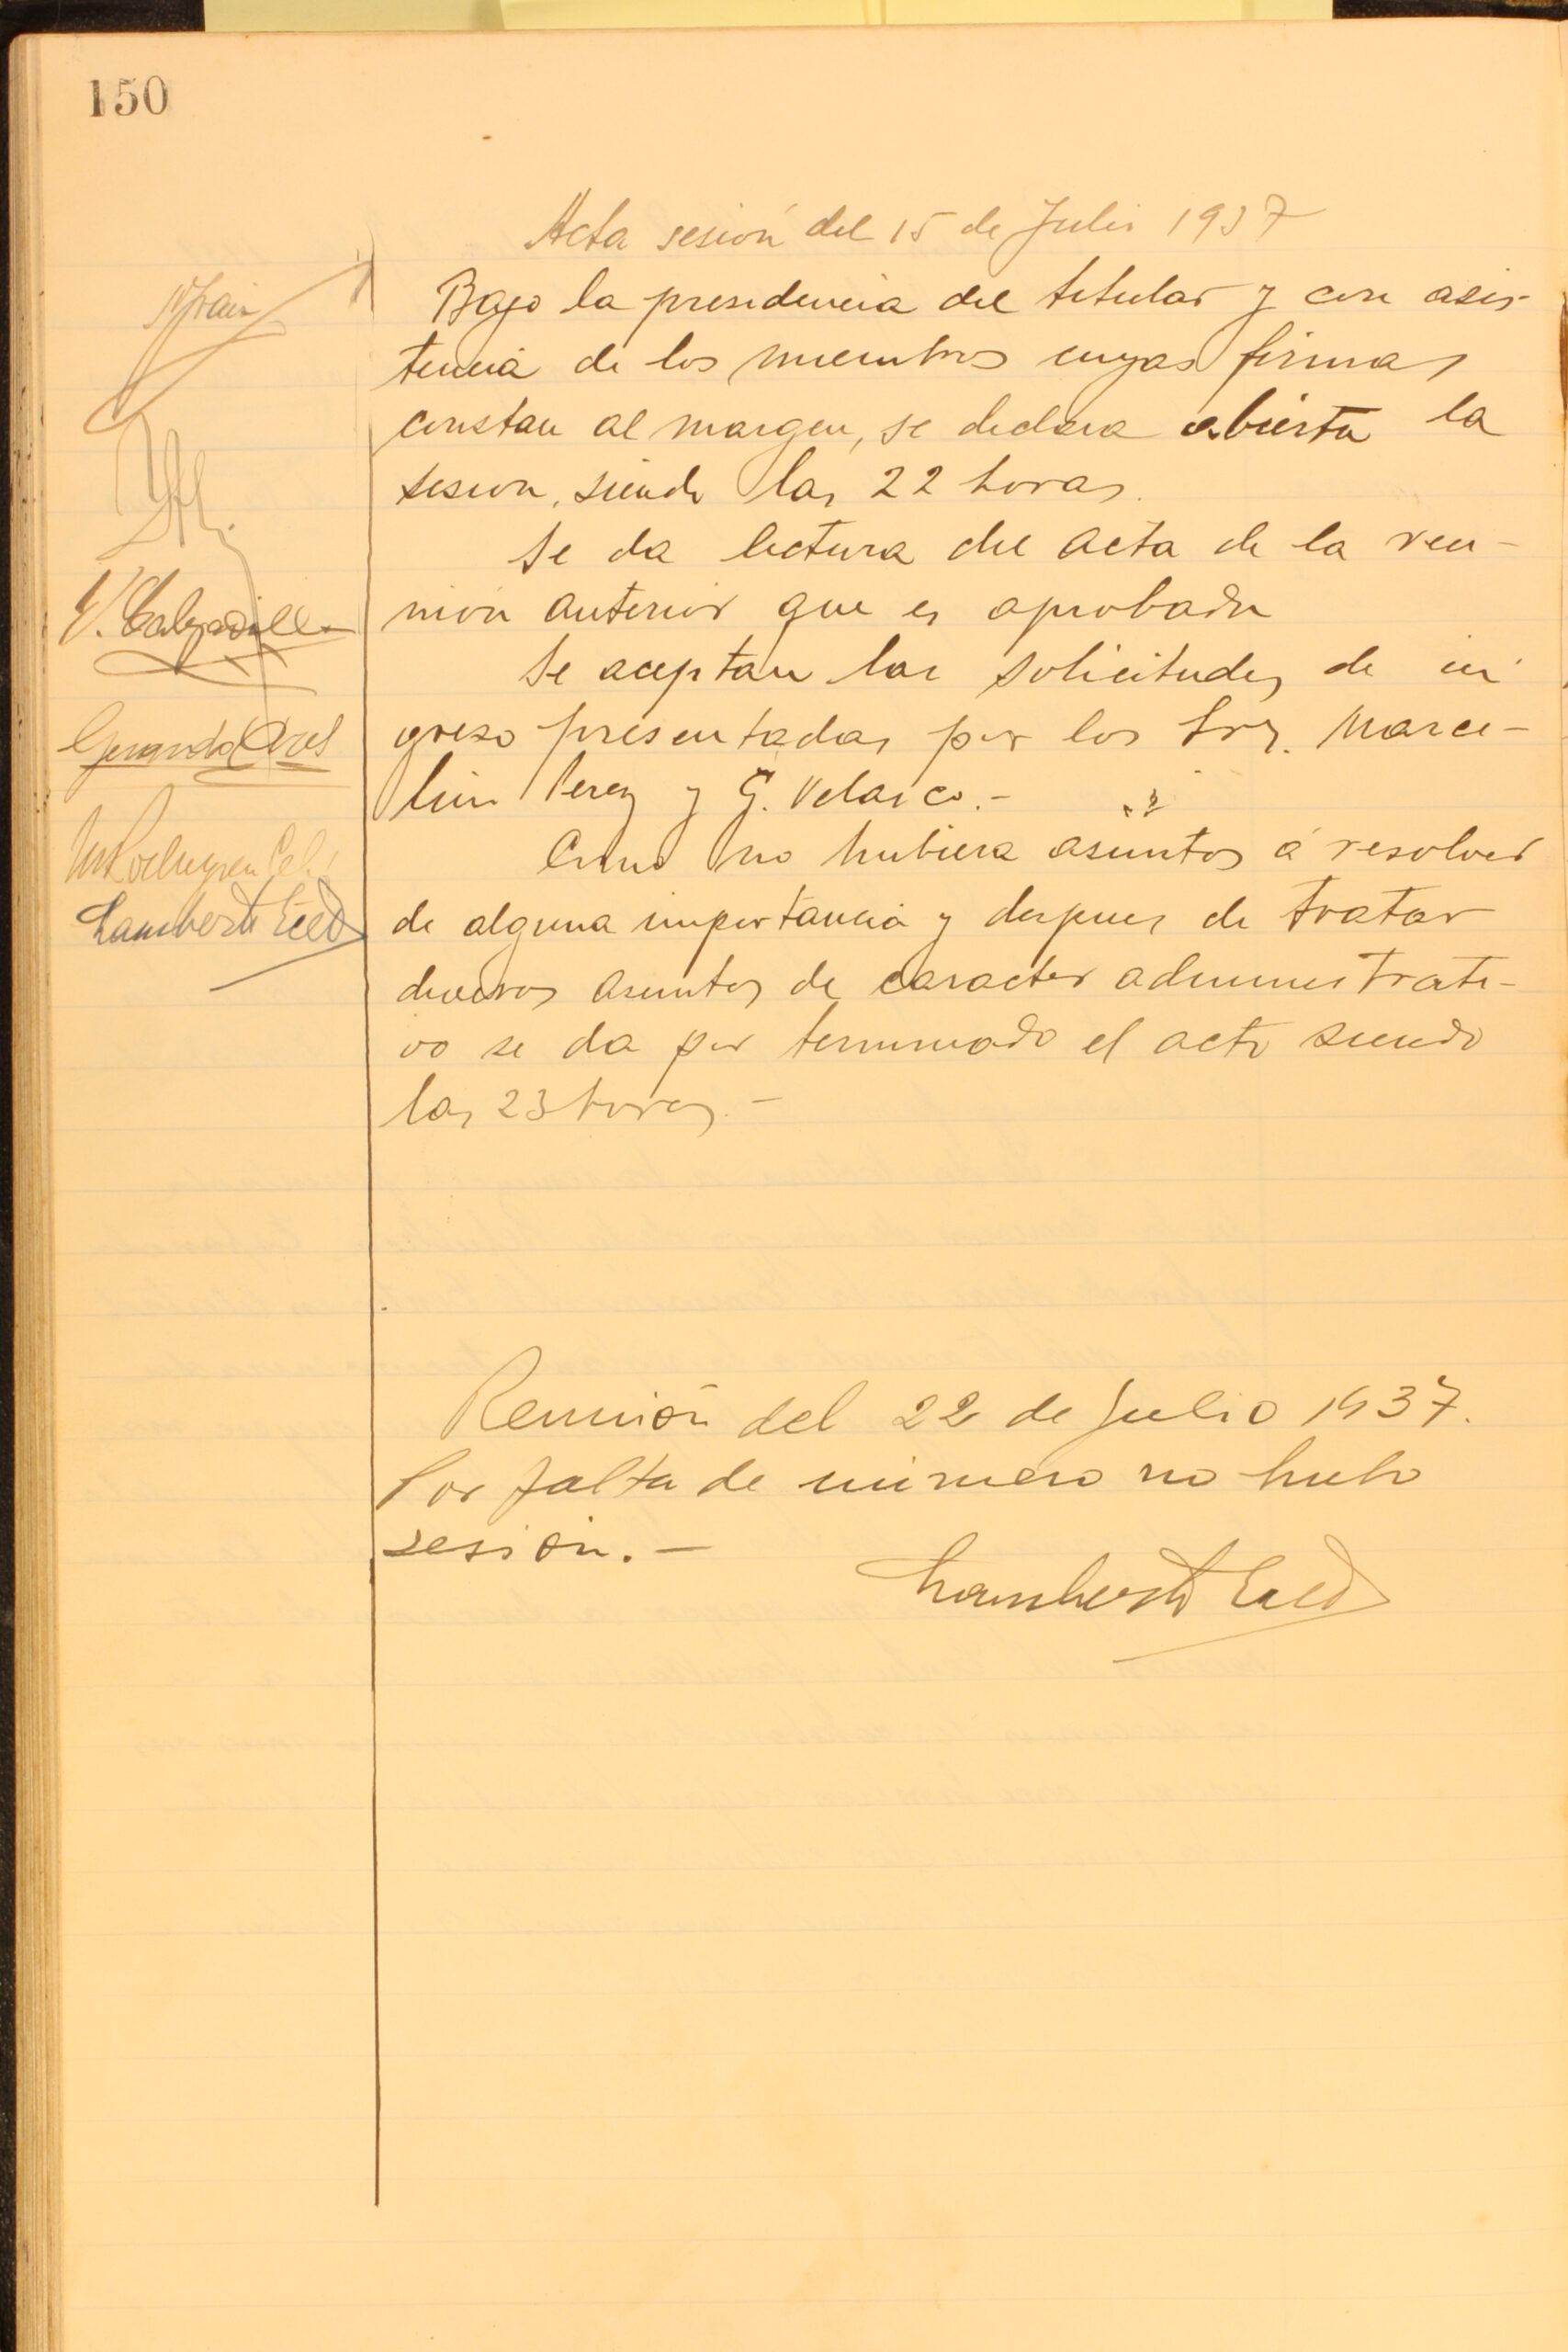 150
Acta sesión del 15 de Julio 1937
Bajo la presidencia del titular y con asis-
tencia de los miembros cuyas firmas
constan al margen, se declara abierta la
sesion, siendo las 22 horas.
Se da lectura del acta de la reu-
nión anterior que es aprobada
Se aceptan las solicitudes de in
greso presentadas por los Srs. Marce-
lino Perez y G. Velasco.-
Como no hubiera asuntos á resolver
de alguna importancia y despues de tratar
diversos asuntos de caracter administrati-
vo se da por terminado el acto siendo
las 23 horas.-
V. Calzadilla
Gerardo
Lamberto
Reunión del 22 de Julio 1937.
Por falta de número no hubo
sesión.-
Lamberto